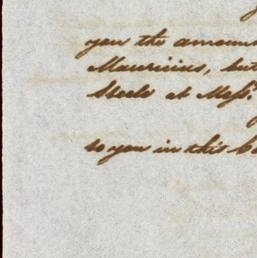 you the amoun
Mauricius, but
Steele at Messrs.
to you in this